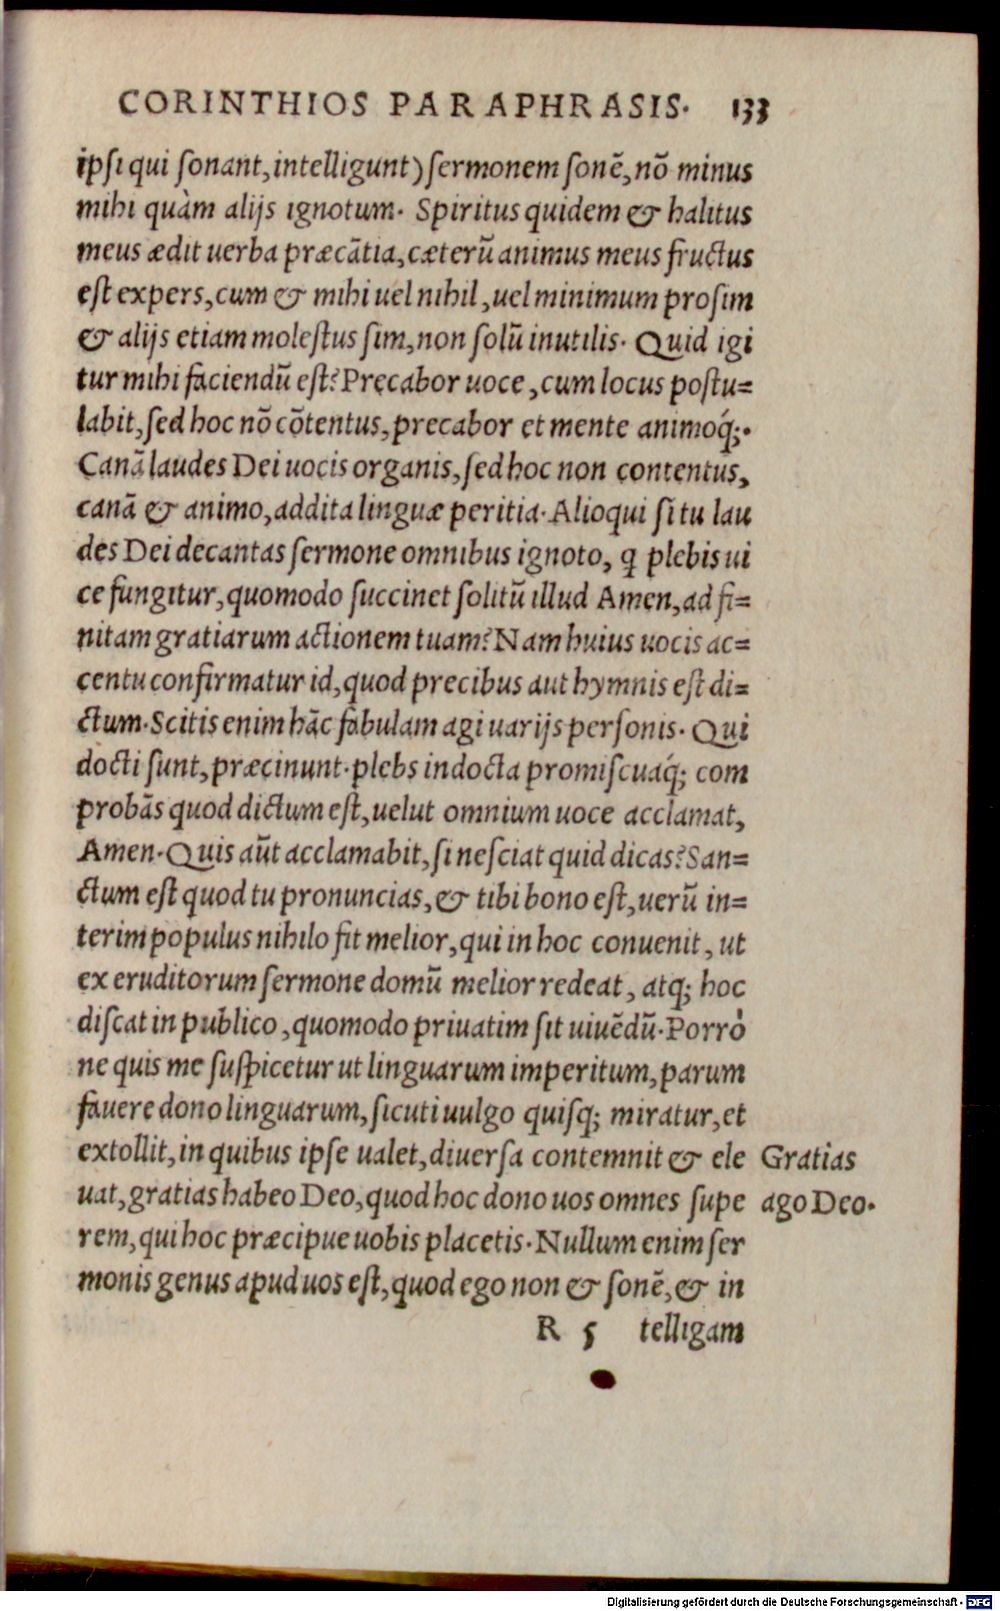 CORINTHIOS PARAPHRASIS. 133
ipsi qui sonant, intelligunt) sermonem sonē, nō minus
mihi quàm alijs ignotum. Spiritus quidem & halitus
meus ædit uerba præcātia, cæterū animus meus fructus
est expers, cum & mihi uel nihil, uel minimum prosim
& alijs etiam molestus sim, non solū inutilis. Quid igi
tur mihi faciendū est? Precabor uoce, cum locus postu=
labit, sed hoc nō cōtentus, precabor et mente animoq́;.
Canā laudes Dei uocis organis, sed hoc non contentus,
canā & animo, addita linguæ peritia. Alioqui si tu lau
des Dei decantas sermone omnibus ignoto, q plebis ui
ce fungitur, quomodo succinet solitū illud Amen, ad fi=
nitam gratiarum actionem tuam? Nam huius uocis ac=
centu confirmatur id, quod precibus aut hymnis est di=
ctum. Scitis enim hāc fabulam agi uarijs personis. Qui
docti sunt, præcinunt. plebs indocta promiscuaq́; com
probās quod dictum est, uelut omnium uoce acclamat,
Amen. Quis aūt acclamabit, si nesciat quid dicas? San=
ctum est quod tu pronuncias, & tibi bono est, uerū in=
terim populus nihilo fit melior, qui in hoc conuenit, ut
ex eruditorum sermone domū melior redeat, atq; hoc
discat in publico, quomodo priuatim sit uiuēdū. Porrò
ne quis me suspicetur ut linguarum imperitum, parum
fauere dono linguarum, sicuti uulgo quisq; miratur, et
extollit, in quibus ipse ualet, diuersa contemnit & ele
Gratias
uat, gratias habeo Deo, quod hoc dono uos omnes supe
ago Deo.
rem, qui hoc præcipue uobis placetis. Nullum enim ser
monis genus apud uos est, quod ego non & sonē, & in
R 5 telligam
Digitalisierung gefördert durch die Deutsche Forschungsgemeinschaft - DFG